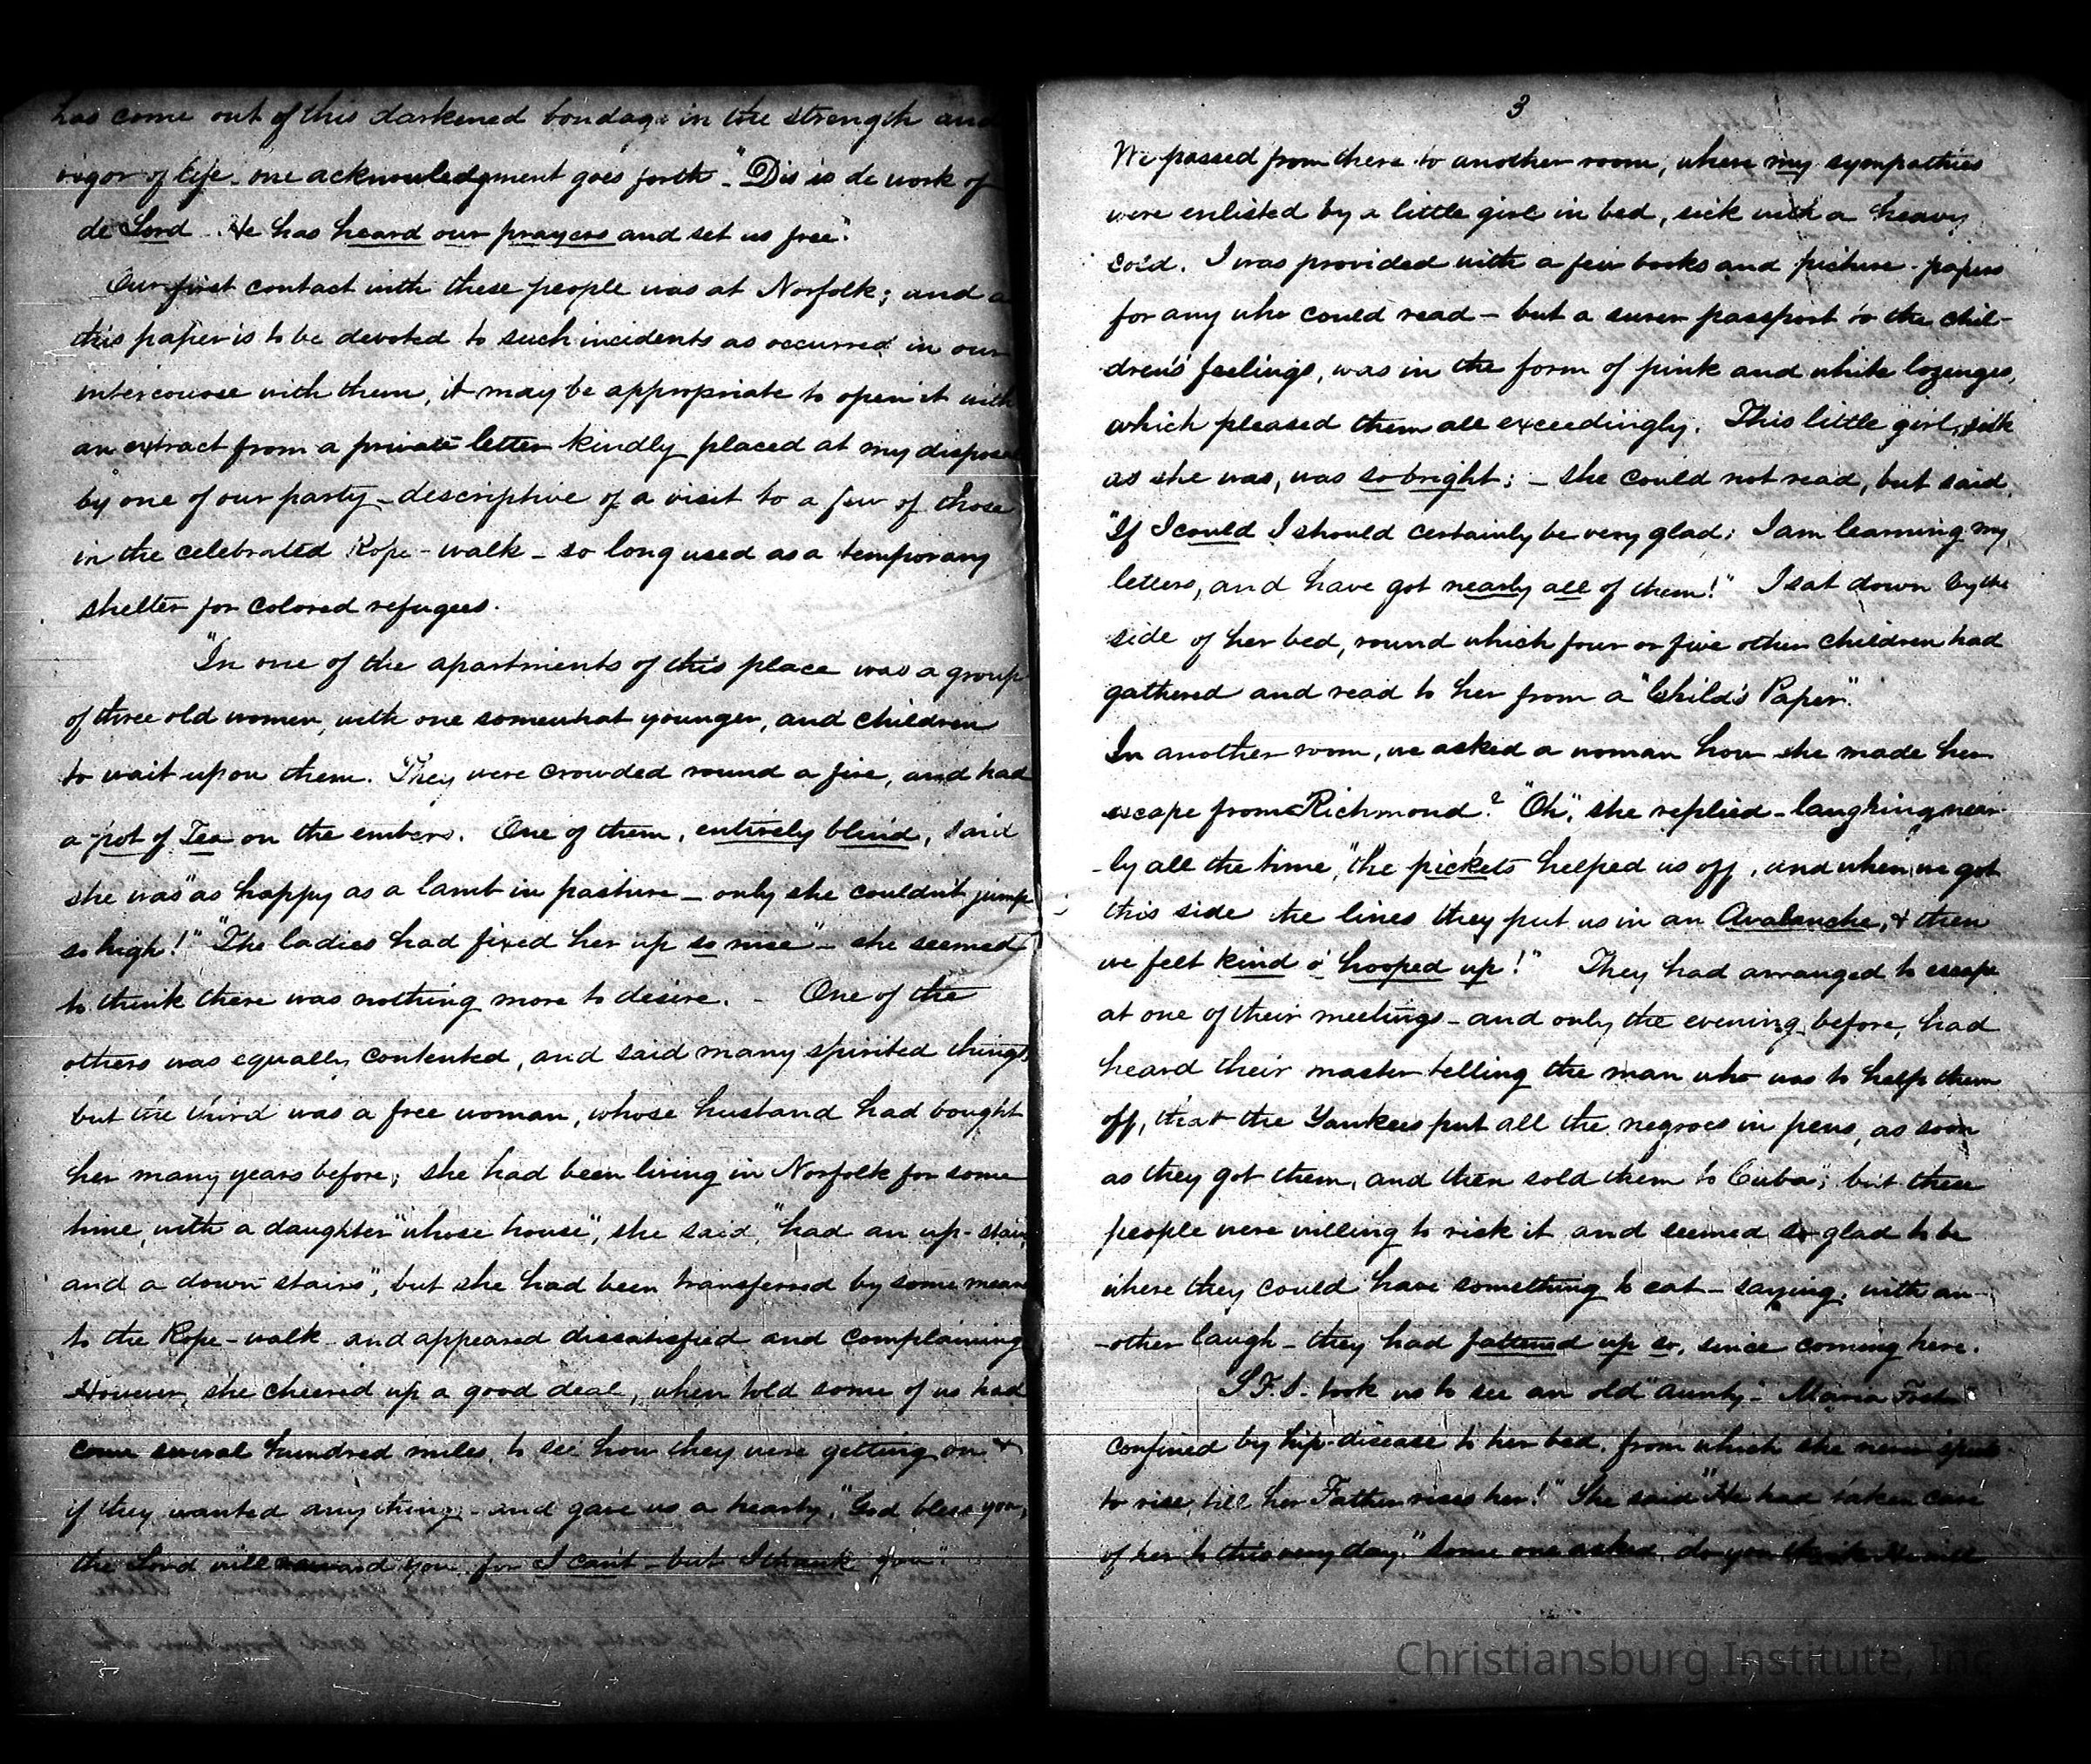 has come out of this darkened bondage in the strength and
vigor of life - one acknowledgment goes forth - "Dis is de work of
de Lord. He has heard our prayers and set us free".
Our first contact with these people was at Norfolk; and a
this paper is to be devoted to such incidents as occurred in our
intercourse with them, it may be appropriate to open it with
an extract from a private letter kindly placed at my disposal
by one of our party - descriptive of a visit to a few of those
in the celebrated Rope-walk - so long used as a temporary
shelter for colored refugees.
"In one of the apartments of this place was a group
of three old women, with one somewhat younger, and children
to wait upon them. They were crowded round a fire, and had
a pot of Tea on the embers. One of them, entirely blind, said
she was "as happy as a lamb in pasture - only she couldn't jump
so high!" "The ladies had fixed her up so nice" - she seemed
to think there was nothing more to desire. - One of the
others was equally contented, and said many spirited things
but the third was a free woman, whose husband had bought
her many years before; she had been living in Norfolk for some
time, with a daughter "whose house", she said, "had an up-stairs
and a down stairs", but she had been transferred by some means
to the Rope-walk and appeared dissatisfied and complaining
However, she cheered up a good deal, when told some of us had
come several hundred miles, to see how they were getting on &
if they wanted any thing - and gave us a hearty, "God bless you,
the Lord will reward you for I can't - but I thank you".
3
We passed from there to another room, where my sympathies
were enlisted by a little girl in bed, sick with a heavy
cold. I was provided with a few books and picture-papers
for any who could read - but a surer passport to the chil-
dren's feelings, was in the form of pink and white lozenges,
which pleased them all exceedingly. This little girl, sick
as she was, was so bright; - she could not read, but said,
"If I could I should certainly be very glad; I am learning my
letters, and have got nearly all of them!" I sat down by the
side of her bed, round which four or five other children had
gathered and read to her from a "Child's Paper".
In another room, we asked a woman how she made her
escape from Richmond? "Oh", she replied - laughing near-
-ly all the time, "the pickets helped us off, and when we got
this side the lines they put us in an Avalanche, & then
we felt kind o' hooped up!" They had arranged to escape
at one of their meetings - and only the evening before, had
heard their master telling the man who was to help them
off, that the Yankees put all the negroes in pens, as soon
as they got them, and then sold them to Cuba"; but these
people were willing to risk it and seemed so glad to be
where they could have something to eat - saying, with an-
-other laugh - they had fattened up so, since coming here.
S.F.S. took us to see an old "aunty" - Maria
confined by hip-disease to her bed, from which she never
to rise, till her Father rises her!" She said "He had taken care
of her to this very day." Some one asked, do you think He will
Christiansburg Institute, Inc